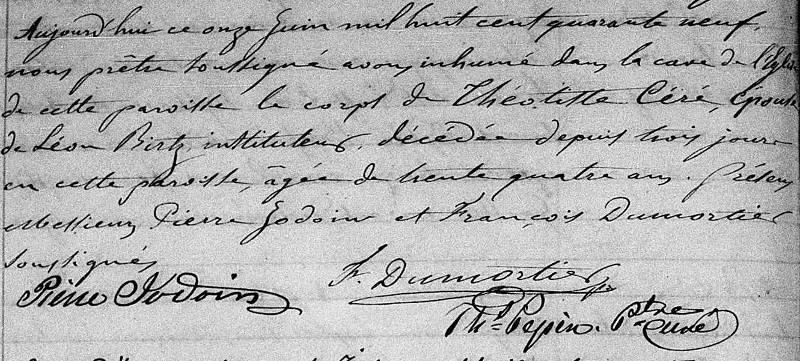 Aujourd'hui ce onze Juin mil huit cent quarante neuf,
nous prêtre soussigné avons inhumé dans la cave de l'Eglise
de cette paroisse le corps de Théotiste Céré, Epouse
de Léon Birtz instituteur, décédée depuis trois jours
en cette paroisse, âgée de trente quatre ans. Présens
Messieurs Pierre Jodoin et François Dumortier
soussignés
Pierre Jodoin F. Dumortier
Ths. Pepin. Ptre Curé